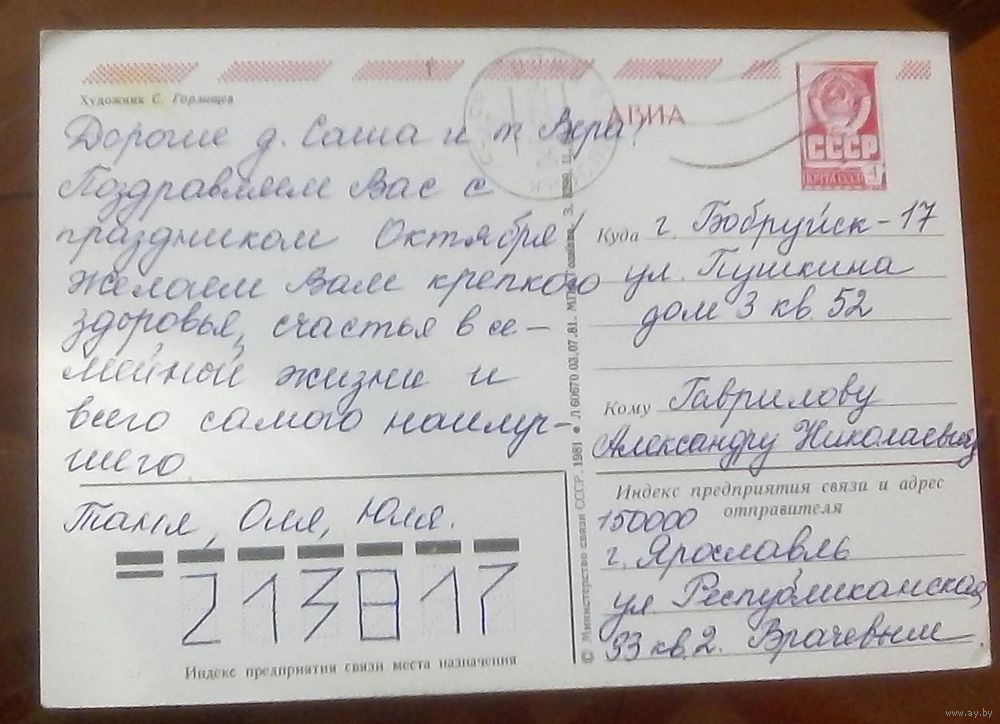 Художник С. Горлищев
АВИА
СССР
ПОЧТА СССР
Дорогие д. Саша и т. Вера!
Поздравляем Вас с
праздником Октября!
желаем Вам крепкого
здоровья, счастья в се-
мейной жизни и
всего самого наилуч-
шего
Таня, Оля, Юля.
213817
Индекс предприятия связи места назначения
© Министерство связи СССР. 1981 ● Л 60670 03.07.81.
Куда г. Бобруйск-17
ул. Пушкина
дом 3 кв. 52
Кому Гаврилову
Александру Николаевичу
Индекс предприятия связи и адрес
отправителя
150000
г. Ярославль
ул Республиканская
33 кв. 2. Врачевым.
www.ay.by